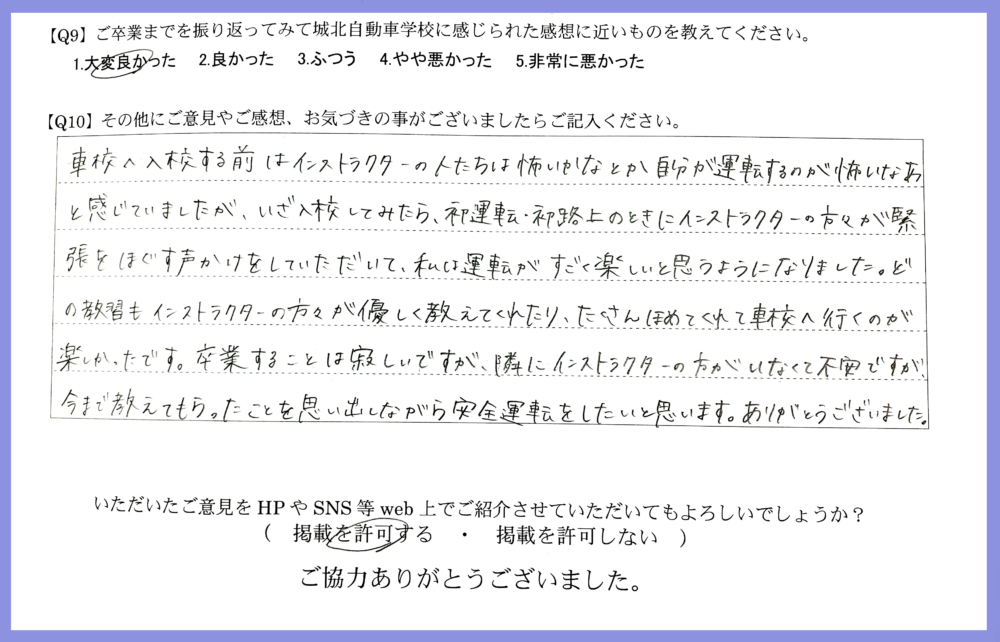 【Q9】ご卒業までを振り返ってみて城北自動車学校に感じられた感想に近いものを教えてください。
1.大変良かった 2.良かった 3.ふつう 4.やや悪かった 5.非常に悪かった
【Q10】その他にご意見やご感想、お気づきの事がございましたらご記入ください。
車校へ入校する前はインストラクターの人たちは怖いかなとか自分が運転するのが怖いなあ
と感じていましたが、いざ入校してみたら、初運転・初路上のときにインストラクターの方々が緊
張をほぐす声かけをしていただいて、私は運転がすごく楽しいと思うようになりました。ど
の教習もインストラクターの方々が優しく教えてくれたり、たくさんほめてくれて車校へ行くのが
楽しかったです。卒業することは寂しいですが、隣にインストラクターの方がいなくて不安ですが、
今まで教えてもらったことを思い出しながら安全運転をしたいと思います。ありがとうございました。
いただいたご意見をHPやSNS等web上でご紹介させていただいてもよろしいでしょうか？
（ 掲載を許可する ・ 掲載を許可しない ）
ご協力ありがとうございました。